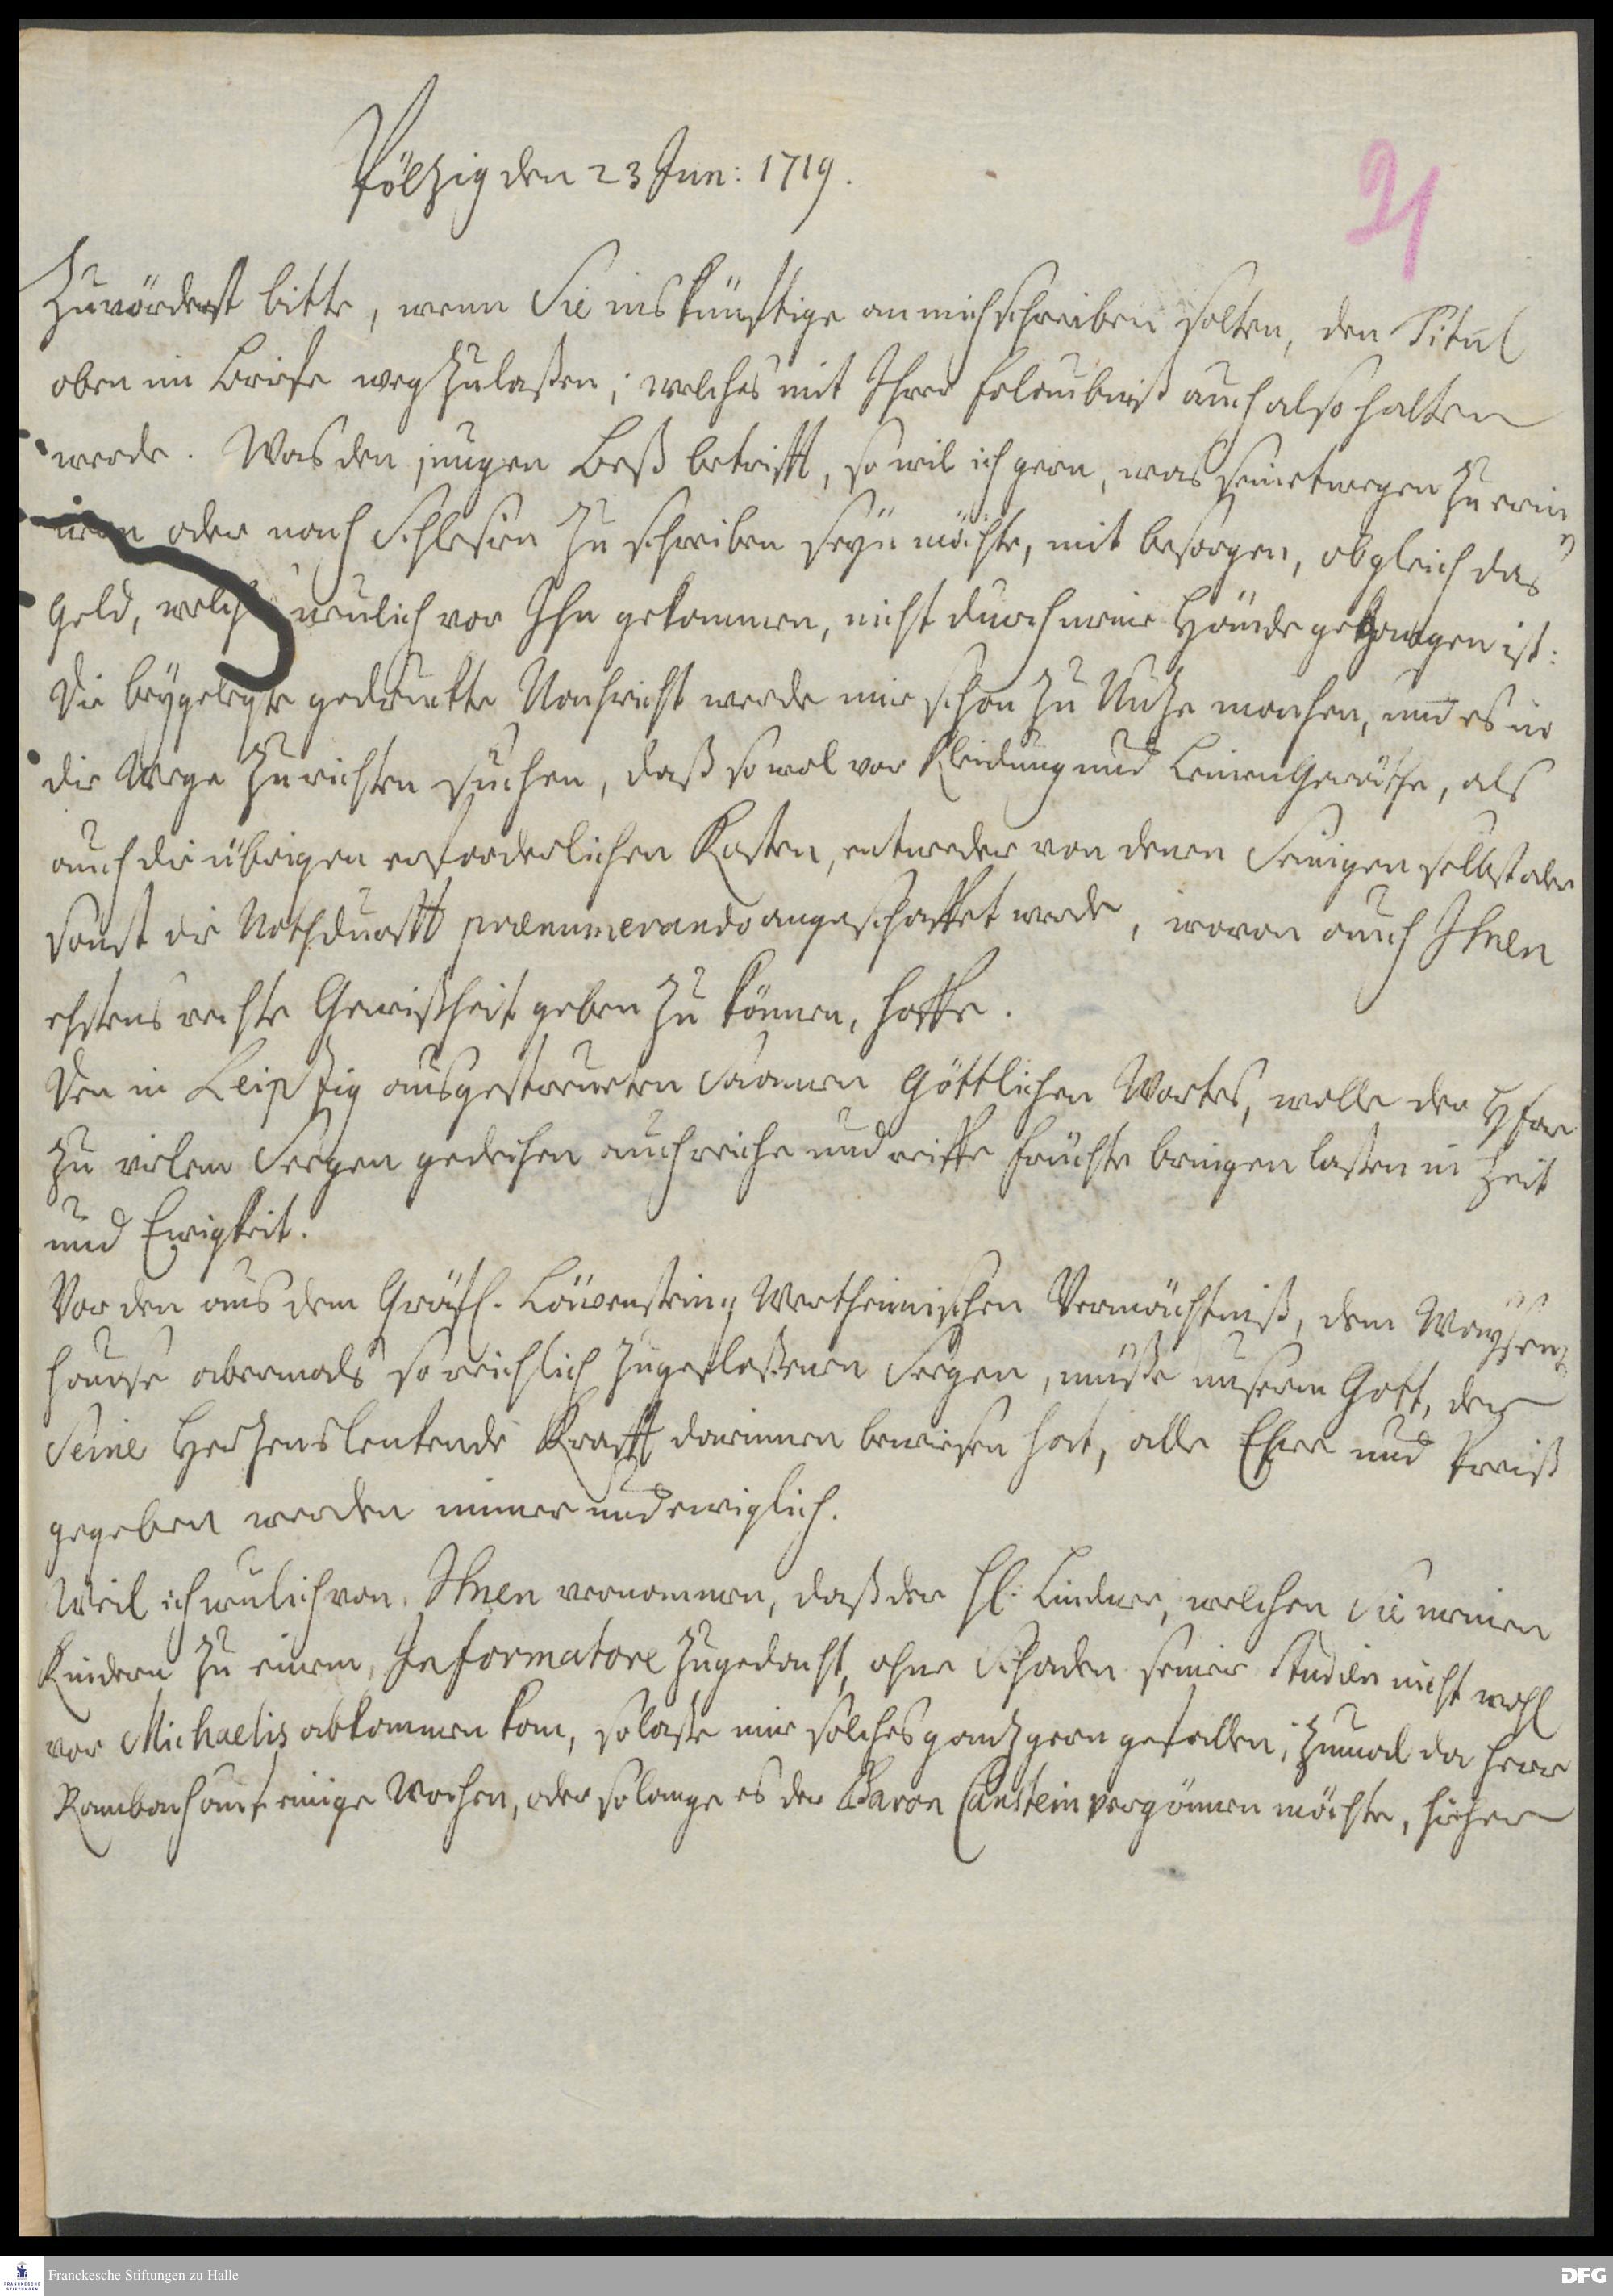 Pöltzig den 23 Jun: 1719.
21
Zuvörderst bitte, wenn Sie ins künfftige an mich schreiben solten, den Titul
oben im Briefe weg zulaßen; welches mit Ihrer Erlaubniß auch also halten
werde. Was den jungen Beß betrifft, so wil ich gern, was seinetwegen zu erin
nern oder nach Schlesien zu schreiben seyn möchte, mit besorgen, obgleich das
Geld, welches neulich vor Ihn gekommen, nicht durch meine Hände gegangen ist:
Die beygelegte gedruckte Nachricht werde mir schon zu Nutze machen, und es in
die Wege zu richten suchen, daß sowol vor Kleidung und LeinenGeräthe, als
auch die übrigen erforderlichen Kosten, entweder von denen Seinigen selbst oder
sonst die Nothdurfft praenumerando angeschaffet werde, wovon auch Ihnen
ehstens rechte Gewißheit geben zu können, hoffe.
Den in Leipzig ausgestreueten Saamen Göttlichen Wortes, wolle der HErr
zu vielem Seegen gedeihen auch reiche und reiffe Früchte bringen laßen in Zeit
und Ewigkeit.
Vor den aus dem Gräfl. Löwenstein- Wertheimischen Vermächtniß, dem Waysen-
hause abermals so reichlich zugefloßenen Seegen, müße unserm Gott, der
Seine Hertzenslenkende Krafft darinnen bewiesen hat, alle Ehre und Preiß
gegeben werden immer und ewiglich.
Weil ich neulich von Ihnen vernommen, daß der H. Lindner, welchen Sie meinen
Kindern zu einem Informatore zugedacht, ohne Schaden seiner Studien nicht wohl
vor Michaelis abkommen kan, so laße mir solches gantz gern gefallen; zumal da Herr
Rambach auf einige Wochen, oder so lange es der Baron Canstein vergönnen möchte, hieher
Franckesche Stiftungen zu Halle
FRANCKESCHE
STIFTUNGEN
DFG